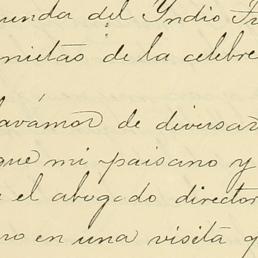 unda del Yndio Tr
mietas de la celebre
avamos de diversas
que mi paisano y
e el abogado director
no en una visita q